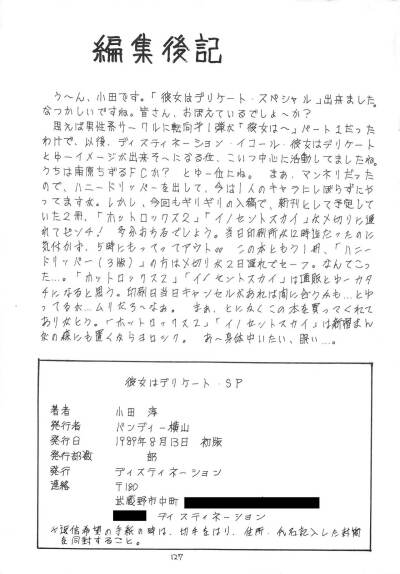 編集後記
う〜ん、小田です。「彼女はデリケート・スペシャル」出来ました。
なつかしいですね。皆さん、おぼえているでしょ〜か?
思えば男性系サークルに転向才1弾が「彼女は〜」パート1だった
わけで、以後、ディスティネーション・イコール・彼女はデリケート
とゆーイメージが出来そ〜になる位、こいつ中心に活動してましたね。
うちは南原ちずるFCか? とゆー位にね。 まぁ、マンネリだった
ので、ハニードリッパーを出して、今は1人のキャラにしぼらずにや
ってますがね。しかし、今回もギリギリの入稿で、新刊として予定して
いた2冊、「ホットロックス2」「イノセントスカイ」が〆切りに遅
れてピンチ! 当日印刷所が12時迄だったのに
気付かず、5時にもってってアウト。 この本ともう1冊、「ハニー
ドリッパー(3版)」の方は〆切りが2日遅れでセーフ。なんてこっ
た…。「ホットロックス2」「イノセントスカイ」は通販とゆーカタ
チになると思う。印刷日当日キャンセルがあれば間に合うかも…とゆ
ってるが…ムリだろ〜なぁ。 まぁ、とにかくこの本を買ってくれて
ありがとう。「ホットロックス2」「イノセントスカイ」は新宿まん
が の森にも置くからヨロシク。 あ〜身体中いたい、眠い…。
彼女はデリケート・SP
著者 小田 海
発行者 バンディー横山
発行日 1989年8月13日 初版
発行部数 部
発行 ディスティネーション
連絡 〒180
武蔵野市中町
ディスティネーション
※返信希望の手紙の時は、切手をはり、住所・氏名記入した封筒
を同封すること。
127